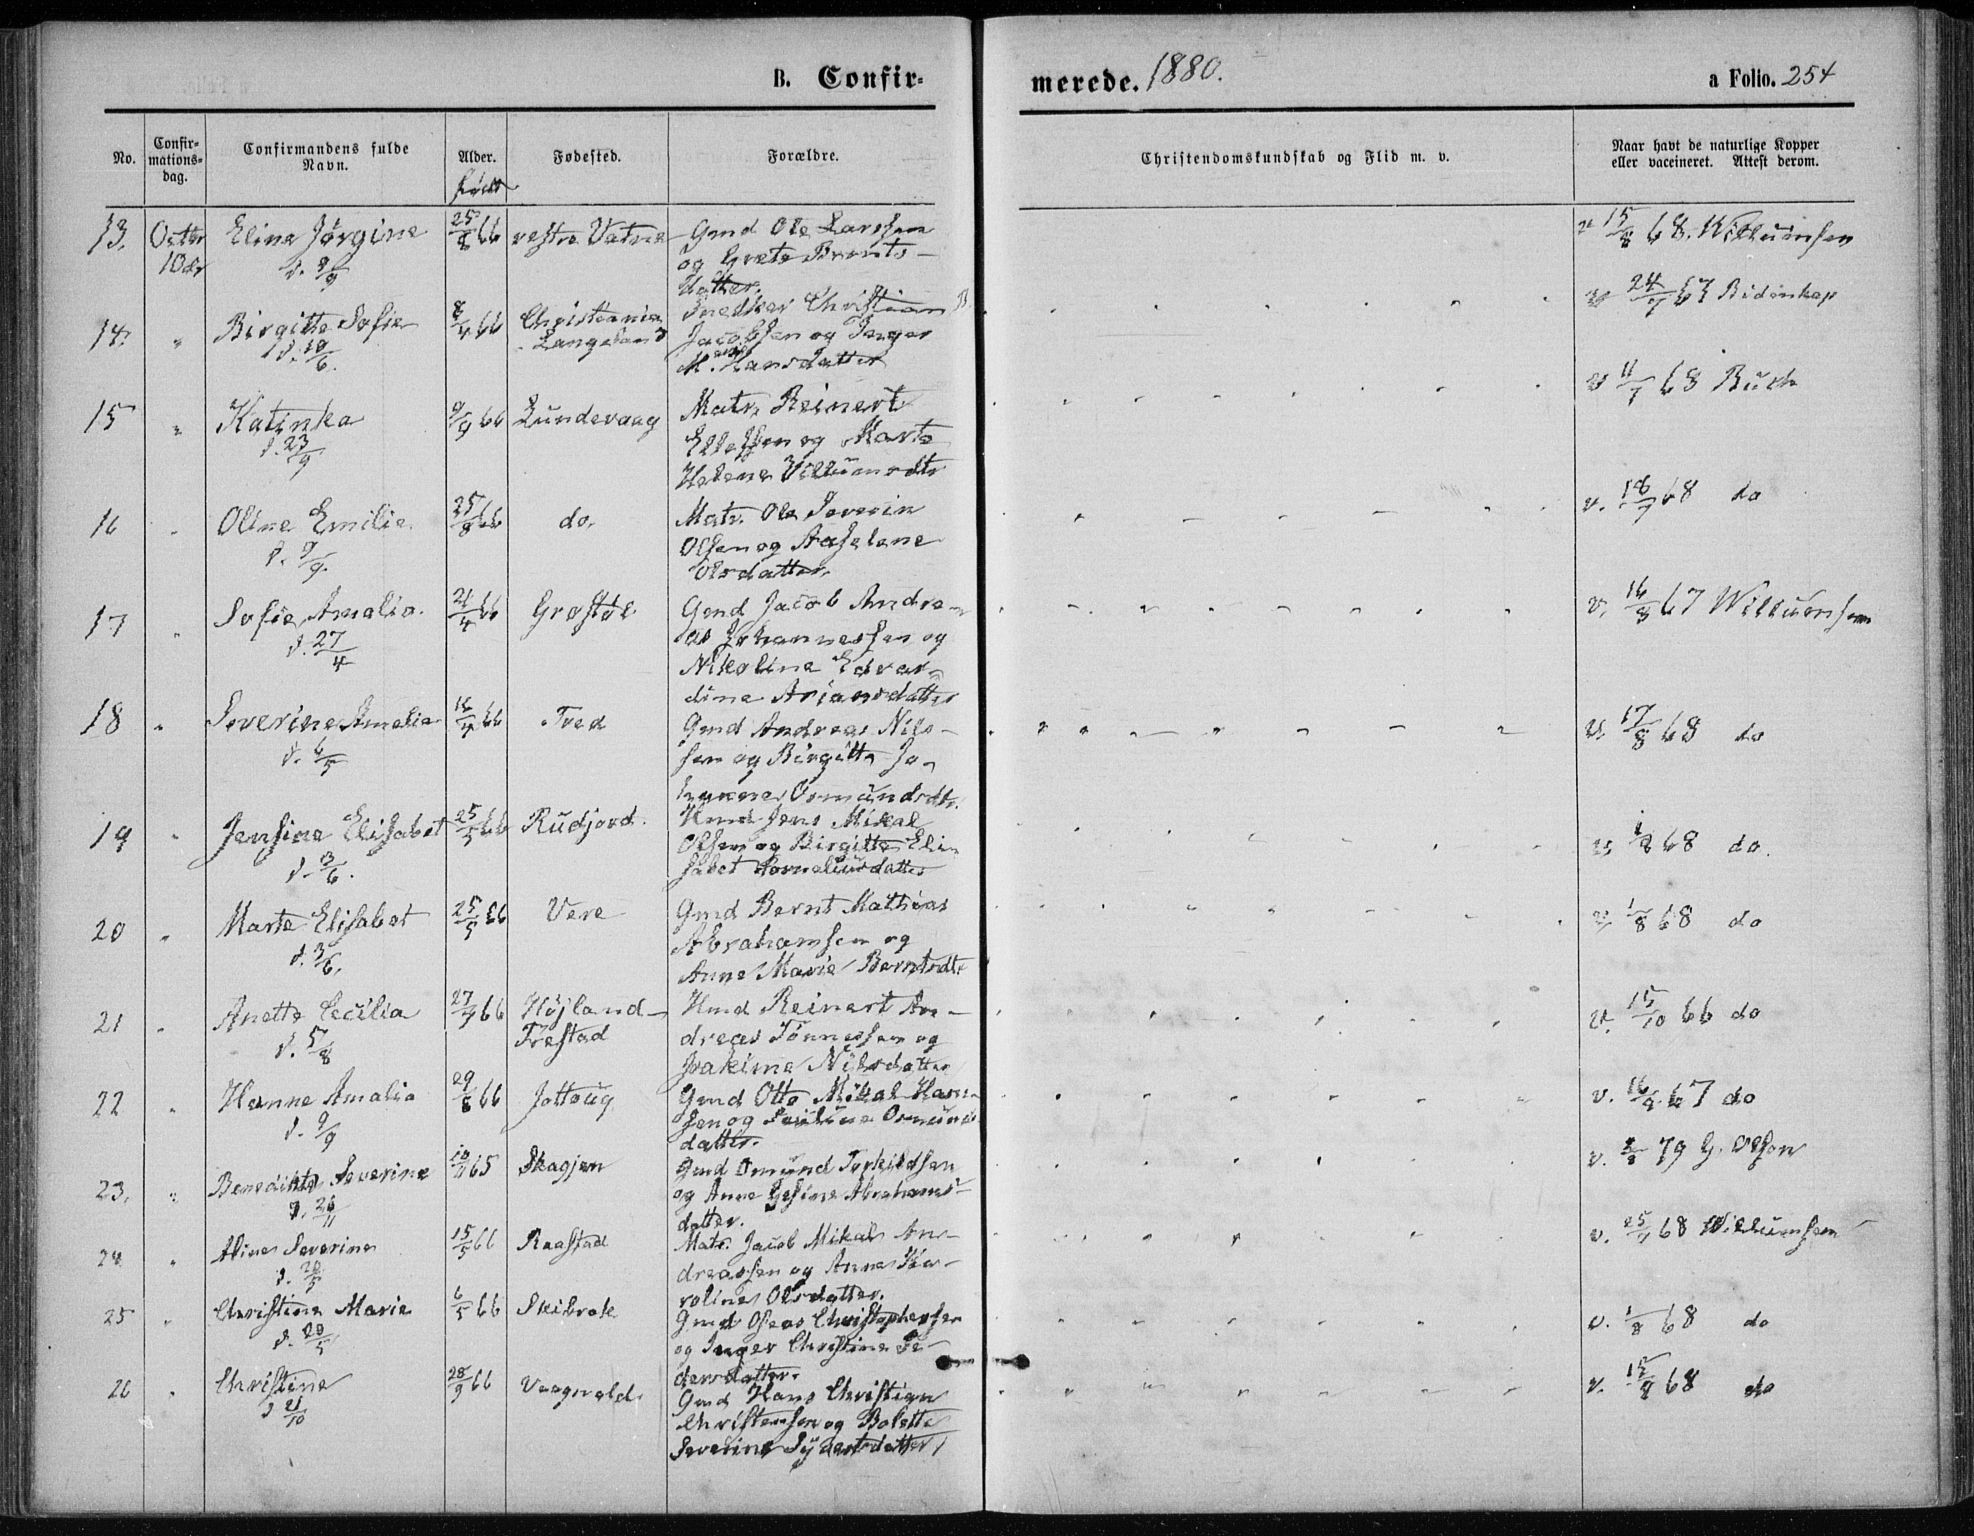 B. Confir-
merede. 1880.
a Folio. 254
No.
Confir-
mations-
dag.
Confirmandens fulde
Navn.
Alder.
født
Fødested.
Forældre.
Christendomskundskab og Flid m. v.
Naar havt de naturlige Kopper
eller vaccineret. Attest derom.
13. Octbr Eline Jørgine 25/8 66 vestre Vatne Gmd Ole Larssen v 15/8 68. Willumsen
10de d. 9/9 og Grete Bernts-
datter.
14. " Birgitte Sofie 8/4 66 Christiania Snedker Christian B. v 24/7 67 Bidenkap
d. 10/6. Langesand Jacobsen og Inger
M. Hansdatter
15 " Katinka 9/9 66 Lundevaag Matr. Reinert v 11/7 68 Buch
d. 23/9 Ellefsen og Marte
Helene Villumsdtr
16 " Oline Emilie 25/8 66 do. Matr. Ole Severin v. 18/7 68 do
d. 9/9. Olsen og Aaselene
Olsdatter.
17 " Sofie Amalia. 21/4 66 Grøstøl Gmd Jacob Andre- v. 16/8 67 Willumsen
d. 27/4 as Johannessen og
Nikoline Edvar-
dine Ariansdatter
18 " Severine Amalia 16/4 66 Tved Gmd Andreas Nils- v. 17/8 68 do
d. 6/5 sen og Birgitte Jo-
hanne Osmundsdtr.
19 " Jensine Elisabet 25/5 66 Rudjord. Hmd Jens Mikal v 1/8 68 do.
d. 3/6. Olsen og Birgitte Eli-
sabet Korneliusdatter
20 " Marte Elisabet 25/5 66 Vere Gmd Bernt Mathias v. 1/8 68 do
d. 3/6. Abrahamsen og
Anne Marie Berntsdtr
21 " Anette Cecilia 27/7 66 Højland- Hmd Reinert An- v. 15/10 66 do
d. 5/8 Frestad dreas Tønnessen og
Joakime Nilsdatter
22 " Hanne Amalia 29/8 66 Jottoug Gmd Otto Mikal Han- v. 16/8 67 do
d. 9/9 sen og Osmunds
datter.
23. " Benedikte Severine 10/11 65 Skagjen Gmd Omund Torkildsen v. 2/8 79 G. Olsen
d. 26/11 og Anne Gesine Abrahams-
datter.
24 " Aline Severine 15/5 66 Raastad Matr. Jacob Mikal An- v. 25/7 68 Willumsen
d. 20/5 dreassen og Anne Ka-
roline Olsdatter.
25 " Christine Marie 6/5 66 Skibrok Gmd Oseas Christophersen v. 1/8 68 do
d. 20/5 og Inger Christine Pe-
dersdatter.
26 " Christine 28/9 66 Vaagvold. Gmd Hans Christian v. 15/8 68 do
d 21/10 Christensen og Bolette
Severine Syvertsdatter